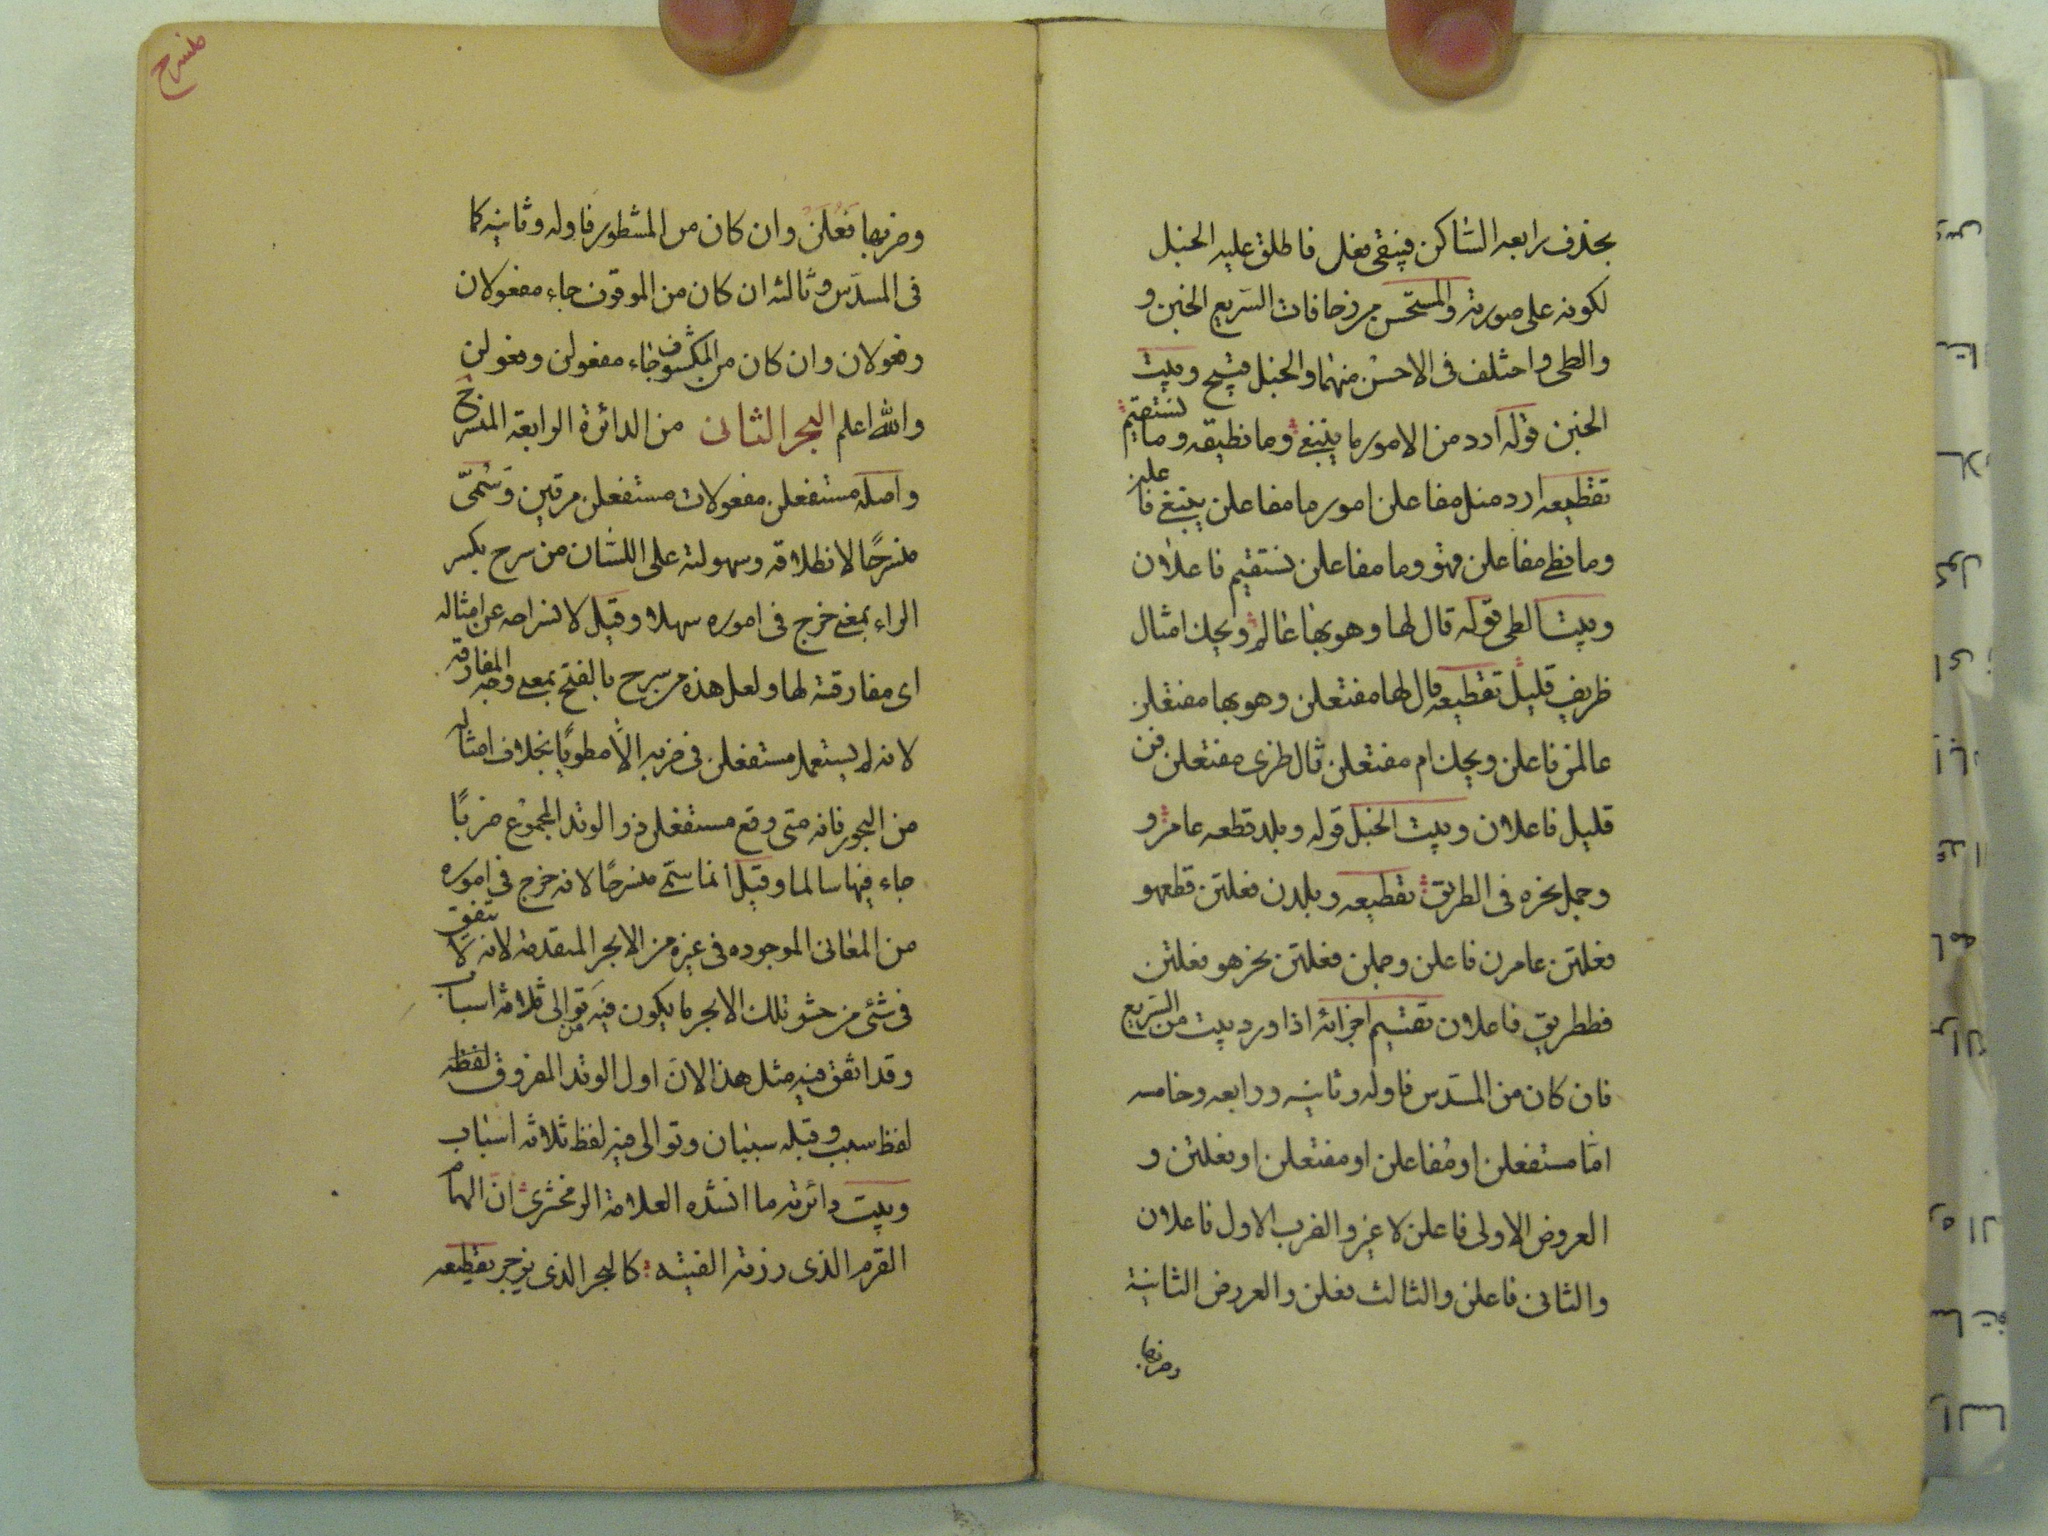 بحذف رابعه الساكن فينقى مغل فاطلق عليه الخبل
لكونه على صورته والمستحسن من زحافات السريع الخبن و
والطى واختلف فى الاحسن منهما والخبل قبيح وبيت
الخبن قوله ارد من الامور ما ينبغى وما تطيقه وما يستقيم
تقطيعه ارد منل مفاعلن امور ما مفاعلن ينبغى فاعلن
وما تطى مفاعلن قهو وما مفاعلن يستقيم فاعلان
وبيت الطى قوله قال لها وهو بها عالم ويحك امثال
ظريف قليل تقطيعه قال لها مفتعلن وهو بها مفتعلن
عالمن فاعلن ويحك ام مفتعلن ثال ظرى مفتعلن فن
قليل فاعلان وبيت الخبل قوله وبلد قطعه عامر و
وجمل نحره فى الطريق تقطيعه وبلدن فعلتن قطعهو
فعلتن عامرن فاعلن وجملن فعلتن نحرهو فعلتن
فططريق فاعلان تقسيم اجزائه اذا ورد بيت من السريع
فان كان من المسدس فاوله وثانيه ورابعه وخامسه
امّا مستفعلن او مفاعلن او مفتعلن او فعلتن و
العروض الاولى فاعلن لا غير والضرب الاول فاعلان
والثانى فاعلن والثالث فعلن والعروض الثانية
وضربها
منسرح
وضربها فَعْلَنْ وان كان من المشطور فاوله وثانيه كما
فى المسدّس وثالثه ان كان من الموقوف جاء مفعولان
وفعولان وان كان من المكشوف جاء مفعولن وفعولن
والله اعلم البحر الثانى من الدائرة الرابعة المنسرح
واصله مستفعلن مفعولات مستفعلن مرتين وسُمّى
منسرحًا لانطلاقه وسهولته على اللسان من سرح بكسر
الراء بمعنى خرج فى اموره سهلا وقيل لانسراحه عن امثاله
اى مفارقته لها ولعل هذه من سرح بالفتح بمعنى المفارقة وجه
لانه لم يستعمل مستفعلن فى ضربه الّا مطويًا بخلاف امثاله
من البحور فانه متى وقع مستفعلن ذو الوتد المجموع ضربًا
جاء فيها سالما وقيل انما سمّى منسرحًا لانه خرج فى اموره
من المعانى الموجوده فى غيره من الابحر المتقدمة لانه لا يتفق
فى شئ من حشو تلك الابحر ما يكون فيه توالى ثلاثة اسباب
وقد اتفق فيه مثل هذا لانّ اول الوتد المفروق لفظه
لفظ سبب وقبله سببان وتوالى فيه لفظ ثلاثة اسباب
وبيت دائرته ما انشده العلامة الزمخشرى انّ الهمام
القرم الذى رزته الفيته كالبحر الذى يزجر تقطيعه